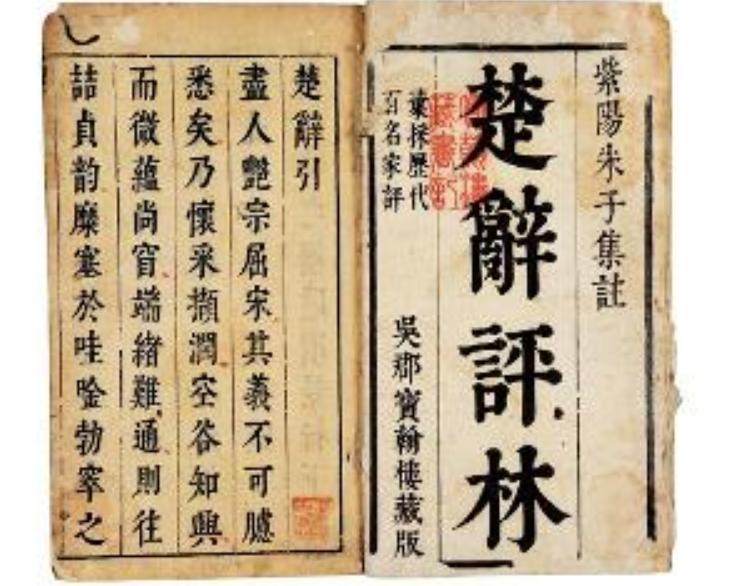 紫陽朱子集註
楚辭評林
彙採歷代
百名家評
吳郡寶翰樓藏版
楚辭引
盡人艷宗屈宋其義不可臚
悉矣乃懷采擷潤空谷知興
而微蘊尚窅端緒難通則往
詰貞韵糜塞於哇唫勃窣之